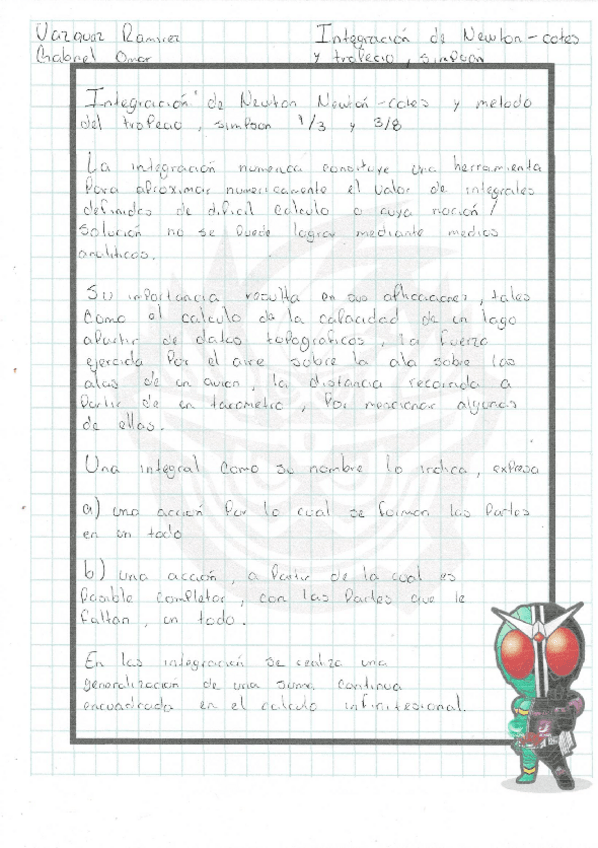 Vázquez Ramirez
Gabriel Omar
Integración de Newton-cotes
y trapecio, simpson
Integración de Newton Newton-cotes y metodo
del trapecio, simpson 1/3 y 3/8
La integración numerica constituye una herramienta
para aproximar numericamente el valor de integrales
definidas de dificil calculo o cuya noción /
solución no se puede lograr mediante medios
analiticos.
Su importancia resulta en sus aplicaciones, tales
como el calculo de la capacidad de un lago
apartir de datos topograficos, la fuerza
ejercida por el aire sobre la ala sobre las
alas de un avion, la distancia recorrida a
partir de un tacometro, por mencionar algunas
de ellas.
Una integral como su nombre lo indica, expresa
a) una acción por lo cual se forman las partes
en un todo
b) una acción, a partir de la cual es
posible completar, con las partes que le
faltan, un todo.
En las integración se realiza una
generalización de una suma continua
encuadrada en el calculo infinitesional.